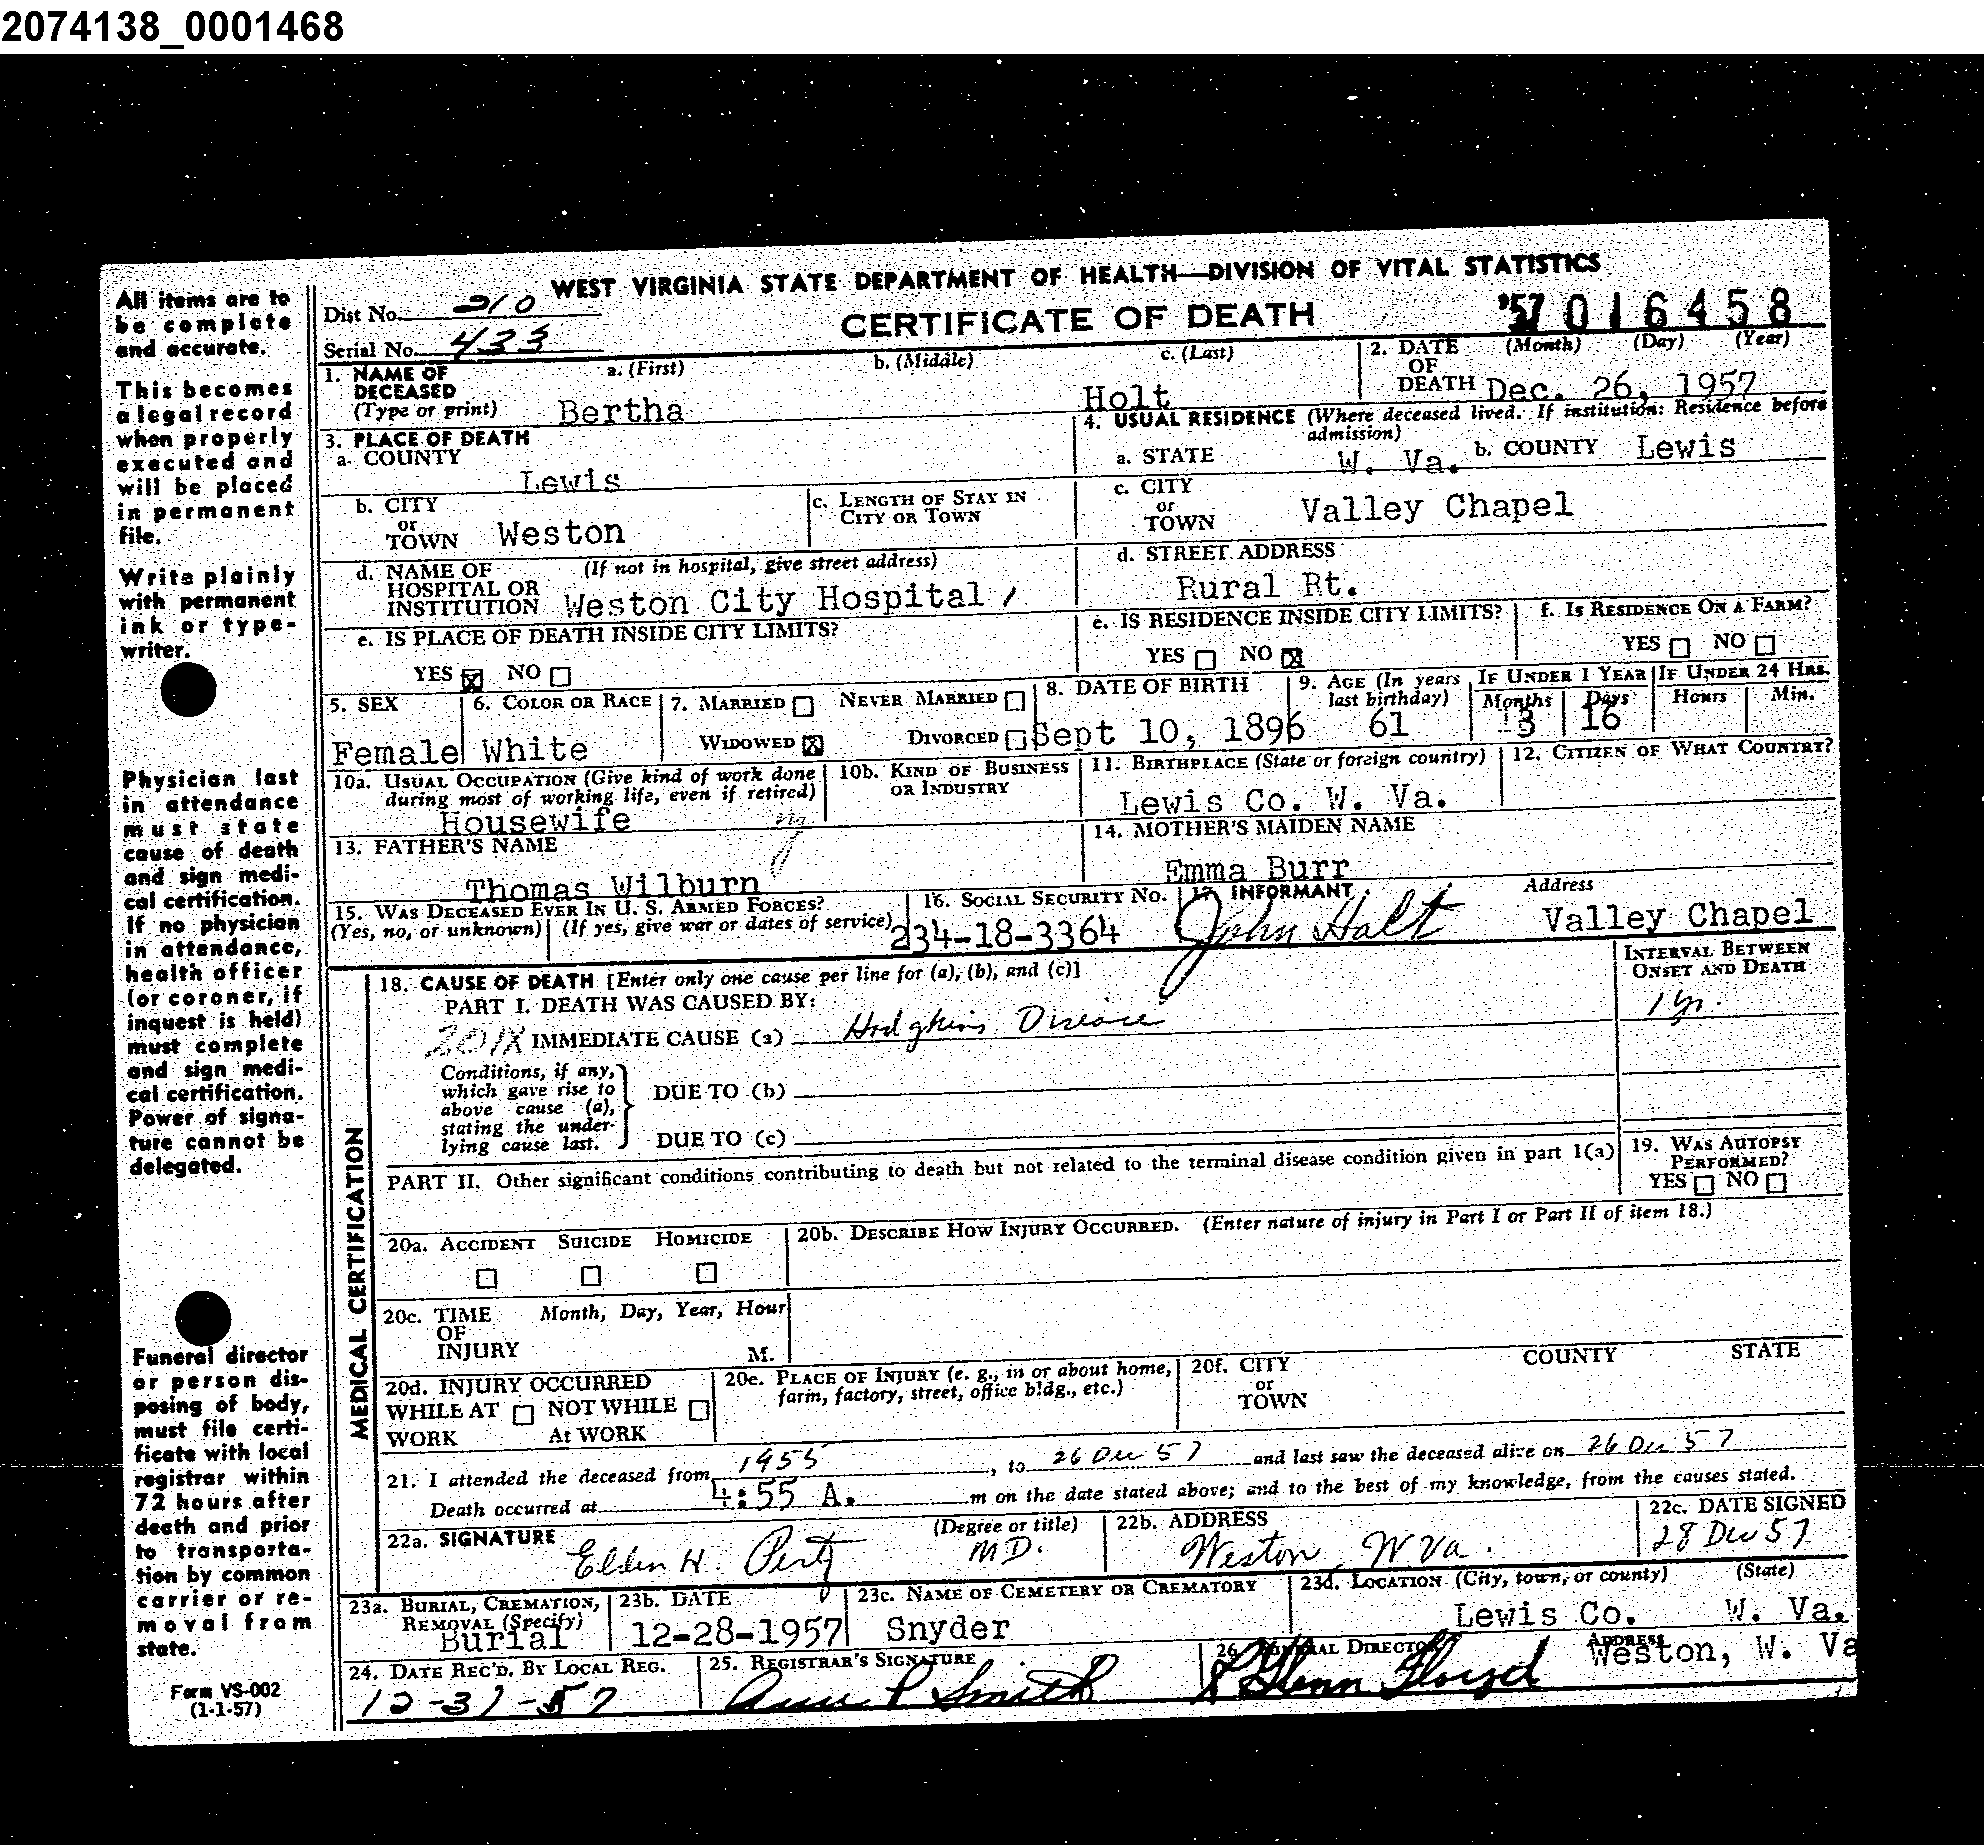 2074138_0001468
WEST VIRGINIA STATE DEPARTMENT OF HEALTH—DIVISION OF VITAL STATISTICS
CERTIFICATE OF DEATH
'57 016458
Dist No. 210
Serial No. 433
1. NAME OF DECEASED (Type or print) a. (First) Bertha b. (Middle) c. (Last) Holt
2. DATE OF DEATH (Month) (Day) (Year) Dec. 26, 1957
3. PLACE OF DEATH
a. COUNTY Lewis
b. CITY or TOWN Weston
c. LENGTH OF STAY IN CITY OR TOWN
d. NAME OF HOSPITAL OR INSTITUTION (If not in hospital, give street address) Weston City Hospital
e. IS PLACE OF DEATH INSIDE CITY LIMITS?
YES ☒ NO ☐
4. USUAL RESIDENCE (Where deceased lived. If institution: Residence before admission)
a. STATE W. Va. b. COUNTY Lewis
c. CITY or TOWN Valley Chapel
d. STREET ADDRESS
Rural Rt.
e. IS RESIDENCE INSIDE CITY LIMITS?
YES ☐ NO ☒
f. IS RESIDENCE ON A FARM?
YES ☐ NO ☐
5. SEX Female
6. COLOR OR RACE White
7. MARRIED ☐ NEVER MARRIED ☐
WIDOWED ☒ DIVORCED ☐
8. DATE OF BIRTH Sept 10, 1896
9. AGE (In years last birthday) 61
IF UNDER 1 YEAR Months 3 Days 16
IF UNDER 24 HRS. Hours Min.
10a. USUAL OCCUPATION (Give kind of work done during most of working life, even if retired)
Housewife
10b. KIND OF BUSINESS OR INDUSTRY
11. BIRTHPLACE (State or foreign country)
Lewis Co. W. Va.
12. CITIZEN OF WHAT COUNTRY?
13. FATHER'S NAME
Thomas Wilburn
14. MOTHER'S MAIDEN NAME
Emma Burr
15. WAS DECEASED EVER IN U. S. ARMED FORCES?
(Yes, no, or unknown) (If yes, give war or dates of service)
16. SOCIAL SECURITY No.
234-18-3364
17. INFORMANT John Holt
Address Valley Chapel
MEDICAL CERTIFICATION
18. CAUSE OF DEATH [Enter only one cause per line for (a), (b), and (c)]
INTERVAL BETWEEN ONSET AND DEATH
PART I. DEATH WAS CAUSED BY:
201X IMMEDIATE CAUSE (a) Hodgkins Disease 1 yr.
Conditions, if any, which gave rise to above cause (a), stating the underlying cause last.
DUE TO (b)
DUE TO (c)
PART II. Other significant conditions contributing to death but not related to the terminal disease condition given in part 1(a)
19. WAS AUTOPSY PERFORMED?
YES ☐ NO ☐
20a. ACCIDENT SUICIDE HOMICIDE
☐ ☐ ☐
20b. DESCRIBE HOW INJURY OCCURRED. (Enter nature of injury in Part I or Part II of item 18.)
20c. TIME OF INJURY Month, Day, Year, Hour
M.
20d. INJURY OCCURRED
WHILE AT WORK ☐ NOT WHILE At WORK ☐
20e. PLACE OF INJURY (e. g., in or about home, farm, factory, street, office bldg., etc.)
20f. CITY or TOWN COUNTY STATE
21. I attended the deceased from 1955, to 26 Dec 57 and last saw the deceased alive on 26 Dec 57
Death occurred at 4:55 A. m on the date stated above; and to the best of my knowledge, from the causes stated.
22a. SIGNATURE Elden H. Pertz (Degree or title) MD.
22b. ADDRESS Weston, W Va.
22c. DATE SIGNED 28 Dec 57
23a. BURIAL, CREMATION, REMOVAL (Specify) Burial
23b. DATE 12-28-1957
23c. NAME OF CEMETERY OR CREMATORY Snyder
23d. LOCATION (City, town, or county) (State)
Lewis Co. W. Va.
24. DATE REC'D. BY LOCAL REG. 12-31-57
25. REGISTRAR'S SIGNATURE Anne P Smith
26. FUNERAL DIRECTOR Glenn Floyd
ADDRESS Weston, W. Va
All items are to
be complete
and accurate.
This becomes
a legal record
when properly
executed and
will be placed
in permanent
file.
Write plainly
with permanent
ink or type-
writer.
Physician last
in attendance
must state
cause of death
and sign medi-
cal certification.
If no physician
in attendance,
health officer
(or coroner, if
inquest is held)
must complete
and sign medi-
cal certification.
Power of signa-
ture cannot be
delegated.
Funeral director
or person dis-
posing of body,
must file certi-
ficate with local
registrar within
72 hours after
death and prior
to transporta-
tion by common
carrier or re-
moval from
state.
Form VS-002
(1-1-57)